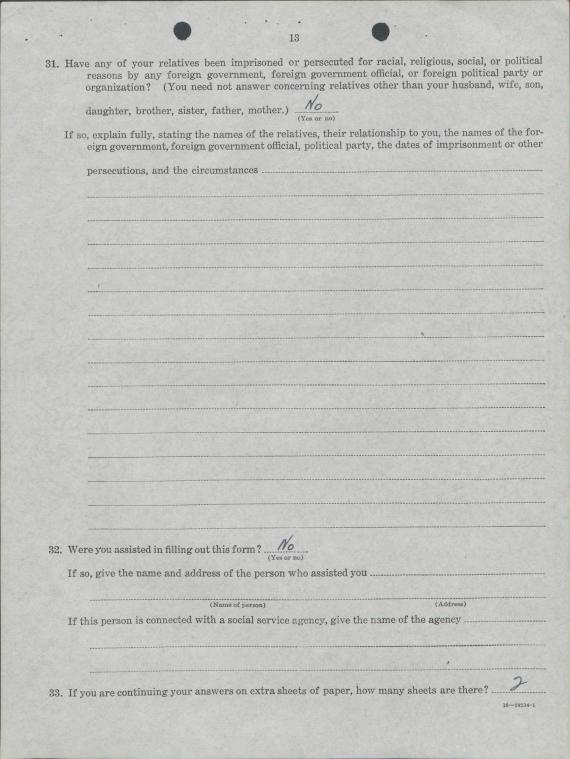 13
31. Have any of your relatives been imprisoned or persecuted for racial, religious, social, or political
reasons by any foreign government, foreign government official, or foreign political party or
organization? (You need not answer concerning relatives other than your husband, wife, son,
daughter, brother, sister, father, mother.) No
(Yes or no)
If so, explain fully, stating the names of the relatives, their relationship to you, the names of the for-
eign government, foreign government official, political party, the dates of imprisonment or other
persecutions, and the circumstances
32. Were you assisted in filling out this form? No
(Yes or no)
If so, give the name and address of the person who assisted you
(Name of person) (Address)
If this person is connected with a social service agency, give the name of the agency
33. If you are continuing your answers on extra sheets of paper, how many sheets are there? 2